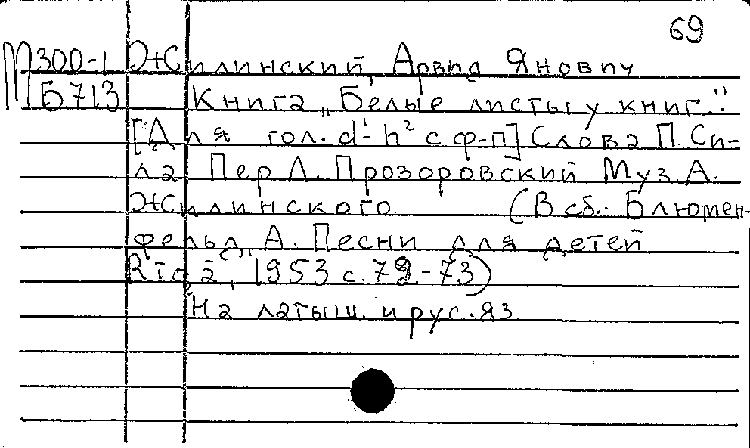 69
М300-1 Жилинский, Арвид Янович
Б713 Книга „Белые листы у книг.."
[Для гол. d'-h² с ф-п] Слова П. Си-
ла. Пер Л. Прозоровский Муз А.
Жилинского (В сб.: Блюмен-
фельд, А. Песни для детей
Rīgā, 1953 с. 72-73)
На латыш. и рус. яз